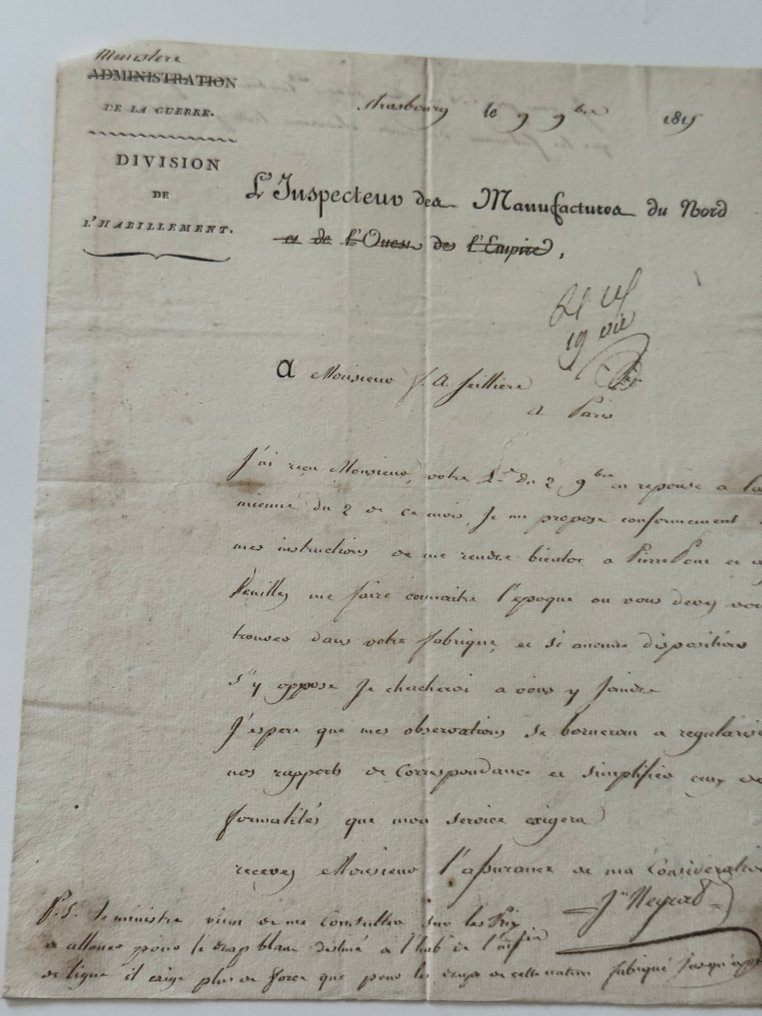 Ministere
ADMINISTRATION
DE LA GUERRE.
DIVISION
DE
L'HABILLEMENT.
Strasbourg le 9 9bre 1815
L'Inspecteur des Manufactures du Nord
et de l'Ouest de l'Empire,
19
A Monsieur f. A Seilliere
a Paris
J'ai reçu Monsieur, votre Lre du 2 9bre en reponse a la
mienne du 2 de ce mois, Je me propose conformement
mes instructions de me rendre bientot a PierrePont et
Veuillez me faire connaitre l'epoque ou vous devez vous
trouver dans votre fabrique, et si aucune dispositions
s'y oppose Je chercherai a vous y Joindre
J'espere que mes observations se borneront a regulariser
nos rapports de Correspondance et simplifier ceux de
formalités que mon service exigera
recevez Monsieur l'assurance de ma Consideration
Jn Neyrad
P.S. le ministre vient de me Consulter sur les Prix
a allouer pour le drap blanc destiné a l'hab. de l'infie
de ligne il exige plus de force que pour les draps de cette nation fabriqué Jusqu'a